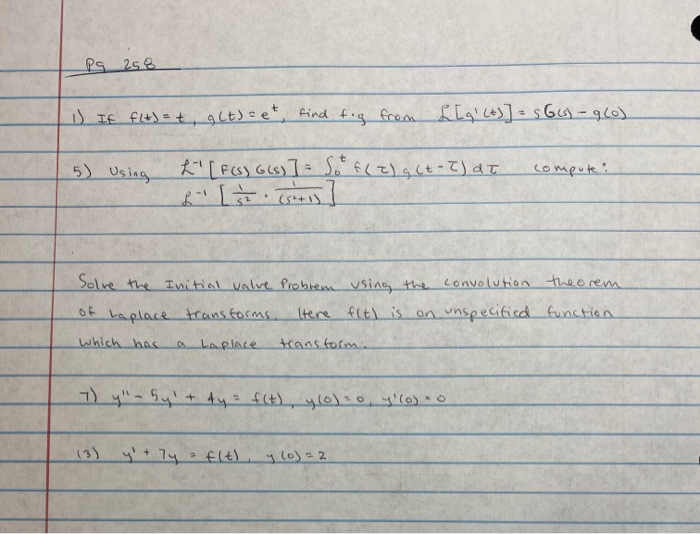 Pg 258
1) If f(t)=t, g(t)=e^t, find f·g from ℒ[g'(t)] = sG(s) - g(0)
5) Using ℒ⁻¹[F(s)G(s)] = ∫₀ᵗ f(τ)g(t-τ)dτ compute:
ℒ⁻¹[1/s² · 1/(s²+1)]
Solve the Initial value Problem using the convolution theorem
of Laplace transforms. Here f(t) is an unspecified function
which has a Laplace transform.
7) y'' - 5y' + 4y = f(t), y(0)=0, y'(0)=0
13) y' + 7y = f(t), y(0)=2